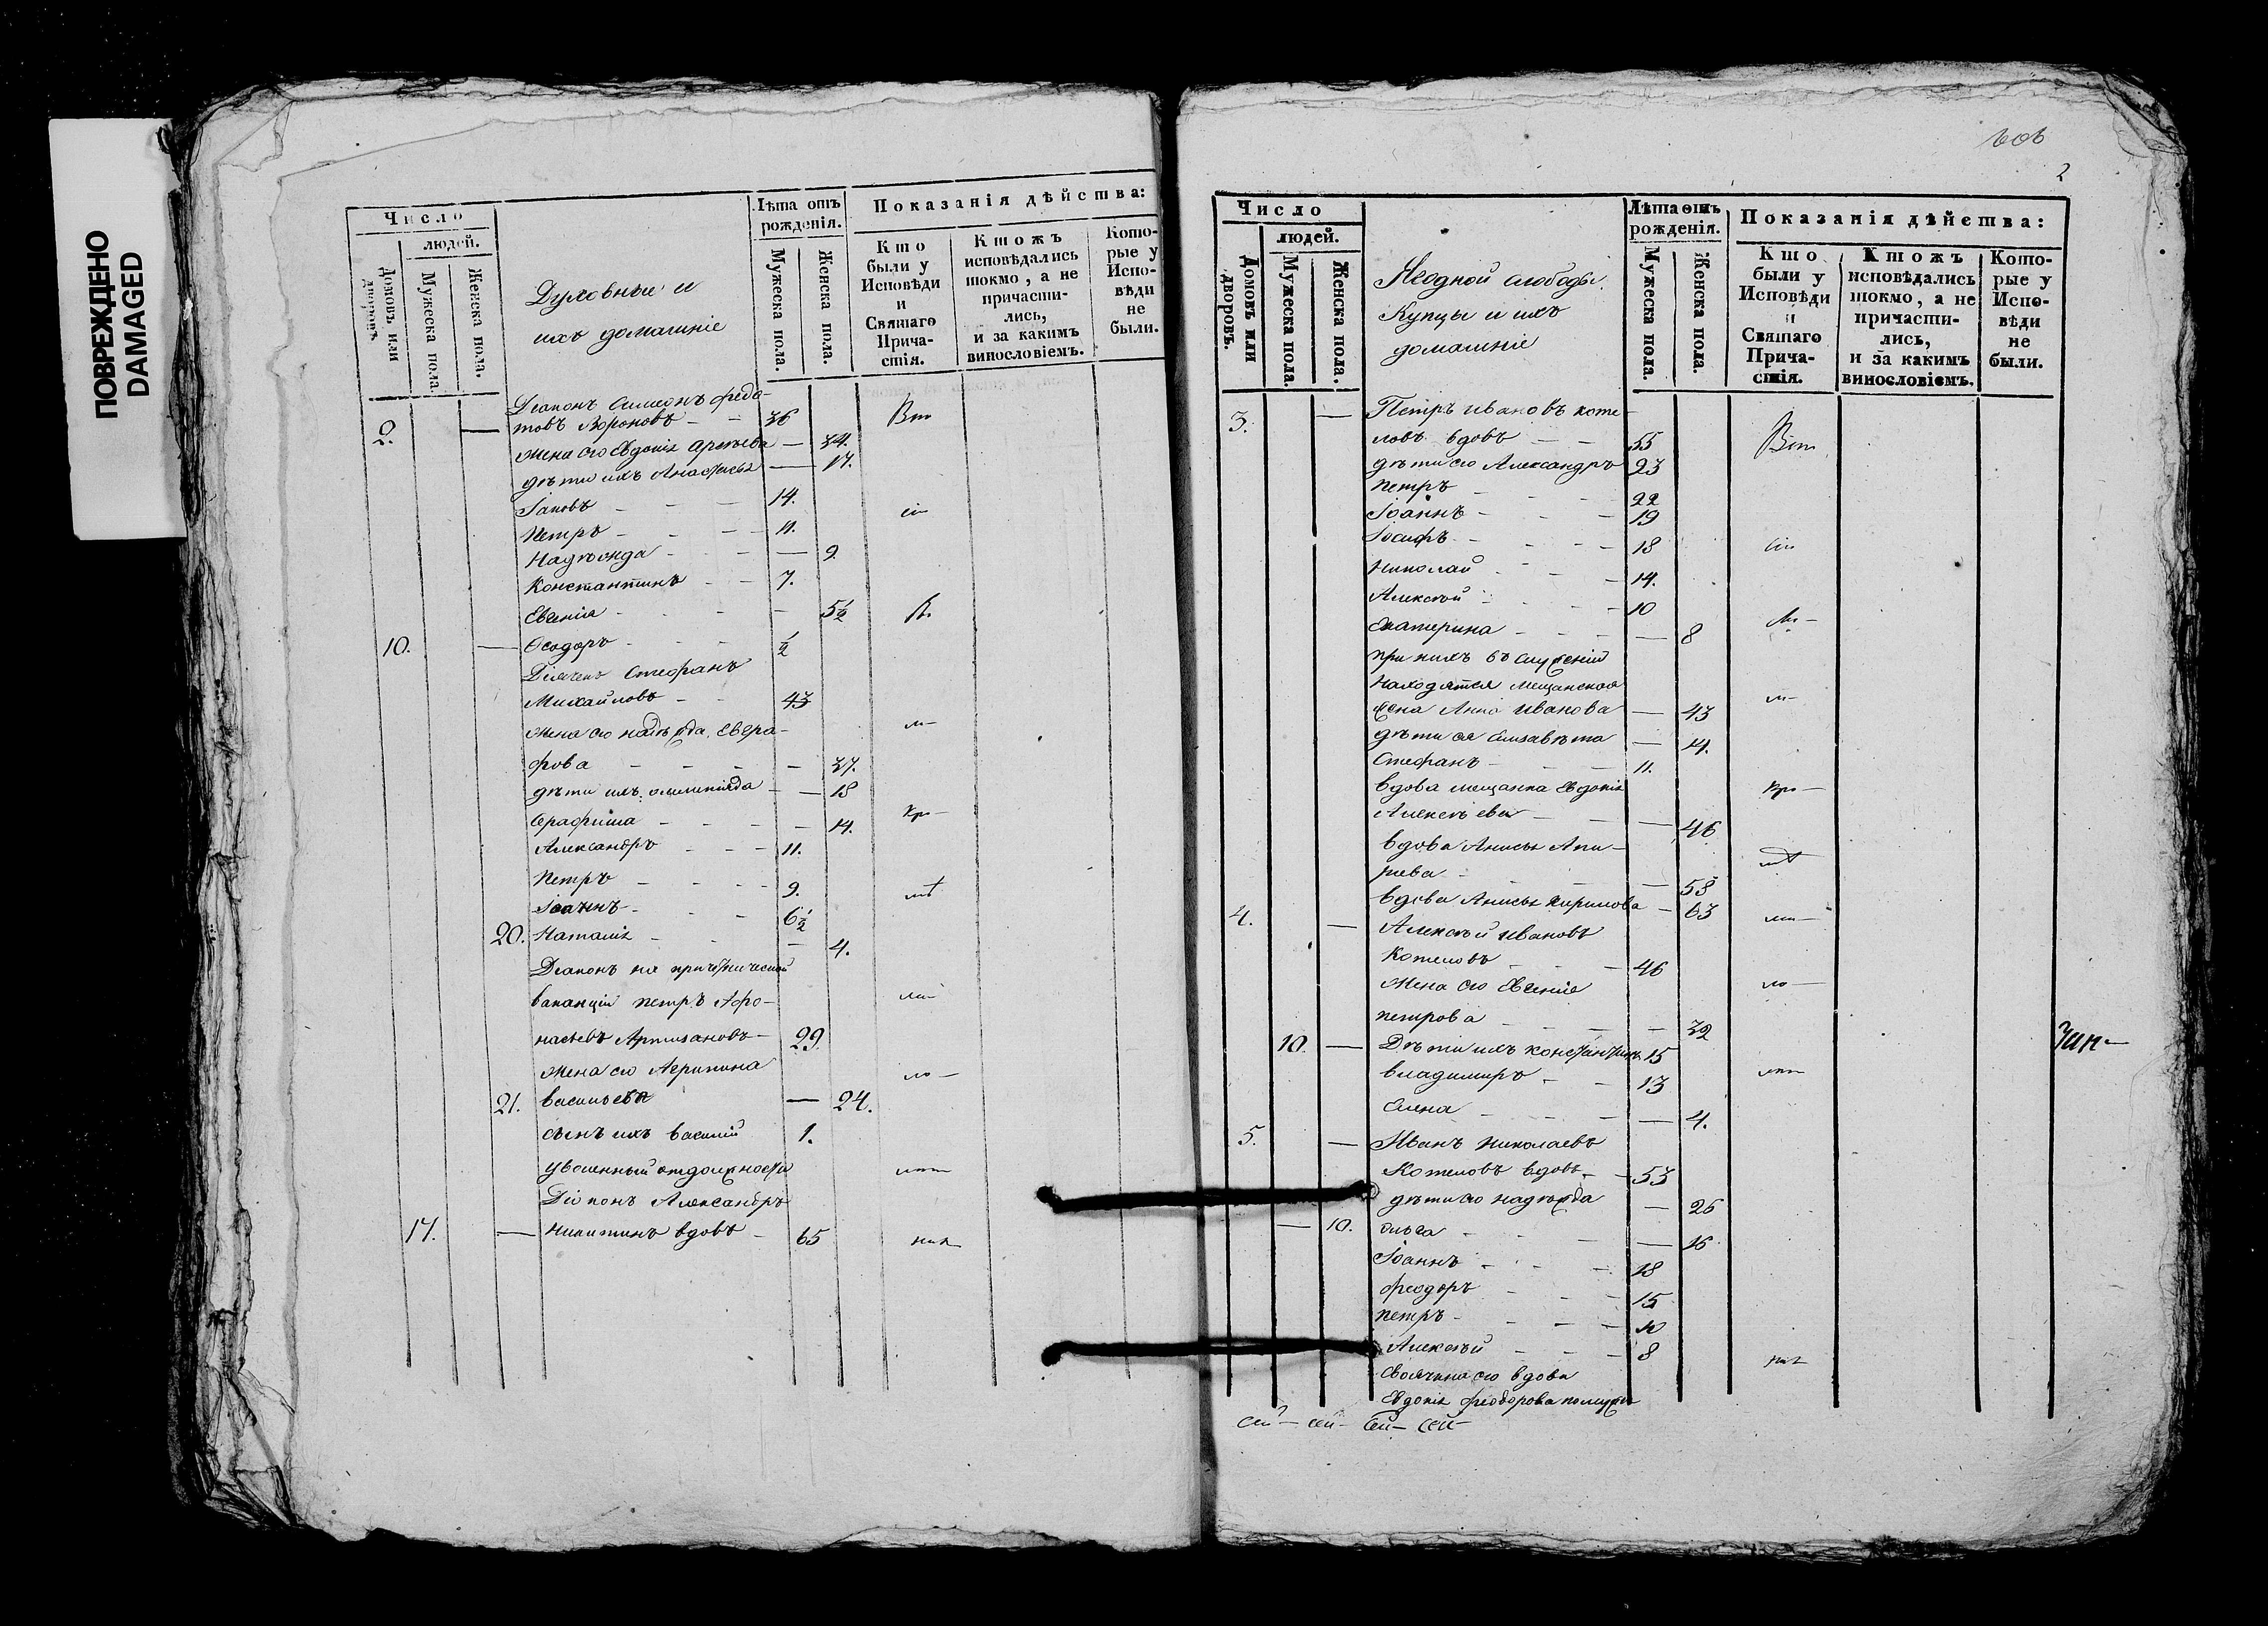 ПОВРЕЖДЕНО
DAMAGED
Число
людей.
Домовъ или дворовъ.
Мужеска пола.
Женска пола.
Духовные и
ихъ домашніе
Лѣта отъ
рожденія.
Мужеска пола.
Женска пола.
Показанія дѣйства:
Кто
были у
Исповѣди
и
Святаго
Прича-
стія.
Ктожъ
исповѣдались
токмо, а не
причасти-
лись,
и за какимъ
винословіемъ.
Кото-
рые у
Испо-
вѣди
не
были.
Діаконъ Симеонъ Федо-
2. — товъ Вороновъ — 36 Вт
жена его Евдокія — 34.
дѣти ихъ Анастасья — 17.
Іаковъ — 14.
Петръ — 11.
Надѣжда — 9
Константинъ — 7.
Евгенія — 5½
10. — Ѳеодоръ ½
Дьячекъ Стефанъ
Михайловъ — 43
жена его надѣжда Евгра-
фова — 37.
дѣти ихъ: олимпіада — 18
Серафима — 14.
Александръ — 11.
Петръ — 9.
Іоаннъ — 6½
20. Наталія — 4.
Діаконъ на причетнической
ваканціи петръ Афо-
насьевъ — 29.
жена его Агрипина
21. васильева — 24.
сынъ ихъ василій 1.
уволенный отдолжности
Діаконъ Александръ
17. — Никитинъ вдовъ — 65
2
Число
людей.
Домовъ или дворовъ.
Мужеска пола.
Женска пола.
слободы
Купцы и ихъ
домашніе
Лѣта отъ
рожденія.
Мужеска пола.
Женска пола.
Показанія дѣйства:
Кто
были у
Исповѣди
и
Святаго
Прича-
стія.
Ктожъ
исповѣдались
токмо, а не
причасти-
лись,
и за какимъ
винословіемъ.
Кото-
рые у
Испо-
вѣди
не
были.
3. — Петръ ивановъ коте-
ловъ вдовъ — 55 Вт
дѣти его Александръ 23
петръ — 22
Іоаннъ — 19
Іосифъ — 18
Николай — 14.
Алексѣй — 10
Екатерина — 8
при нихъ въ служеніи
находятся мещанская
жена Анна иванова — 43
дѣти ея Елизавѣта — 14.
Стефанъ — 11.
вдова мещанка Евдокія
Алексѣева — 46
вдова Анисья
— 58
вдова Анисья Кирилова — 63
4. — Алексѣй ивановъ
Котеловъ — 46
жена его Евгенія
петрова — 32
10. — Дѣти ихъ константинъ 15
владимиръ — 13
Елена — 4.
5. — Иванъ Николаевъ
Котеловъ вдовъ — 53
дѣти его надѣжда — 26
— 10. ольга — 16
Іоаннъ — 18
феодоръ — 15
петръ — 10
Алексѣй — 8
Своячина его вдова
Евдокія феодорова